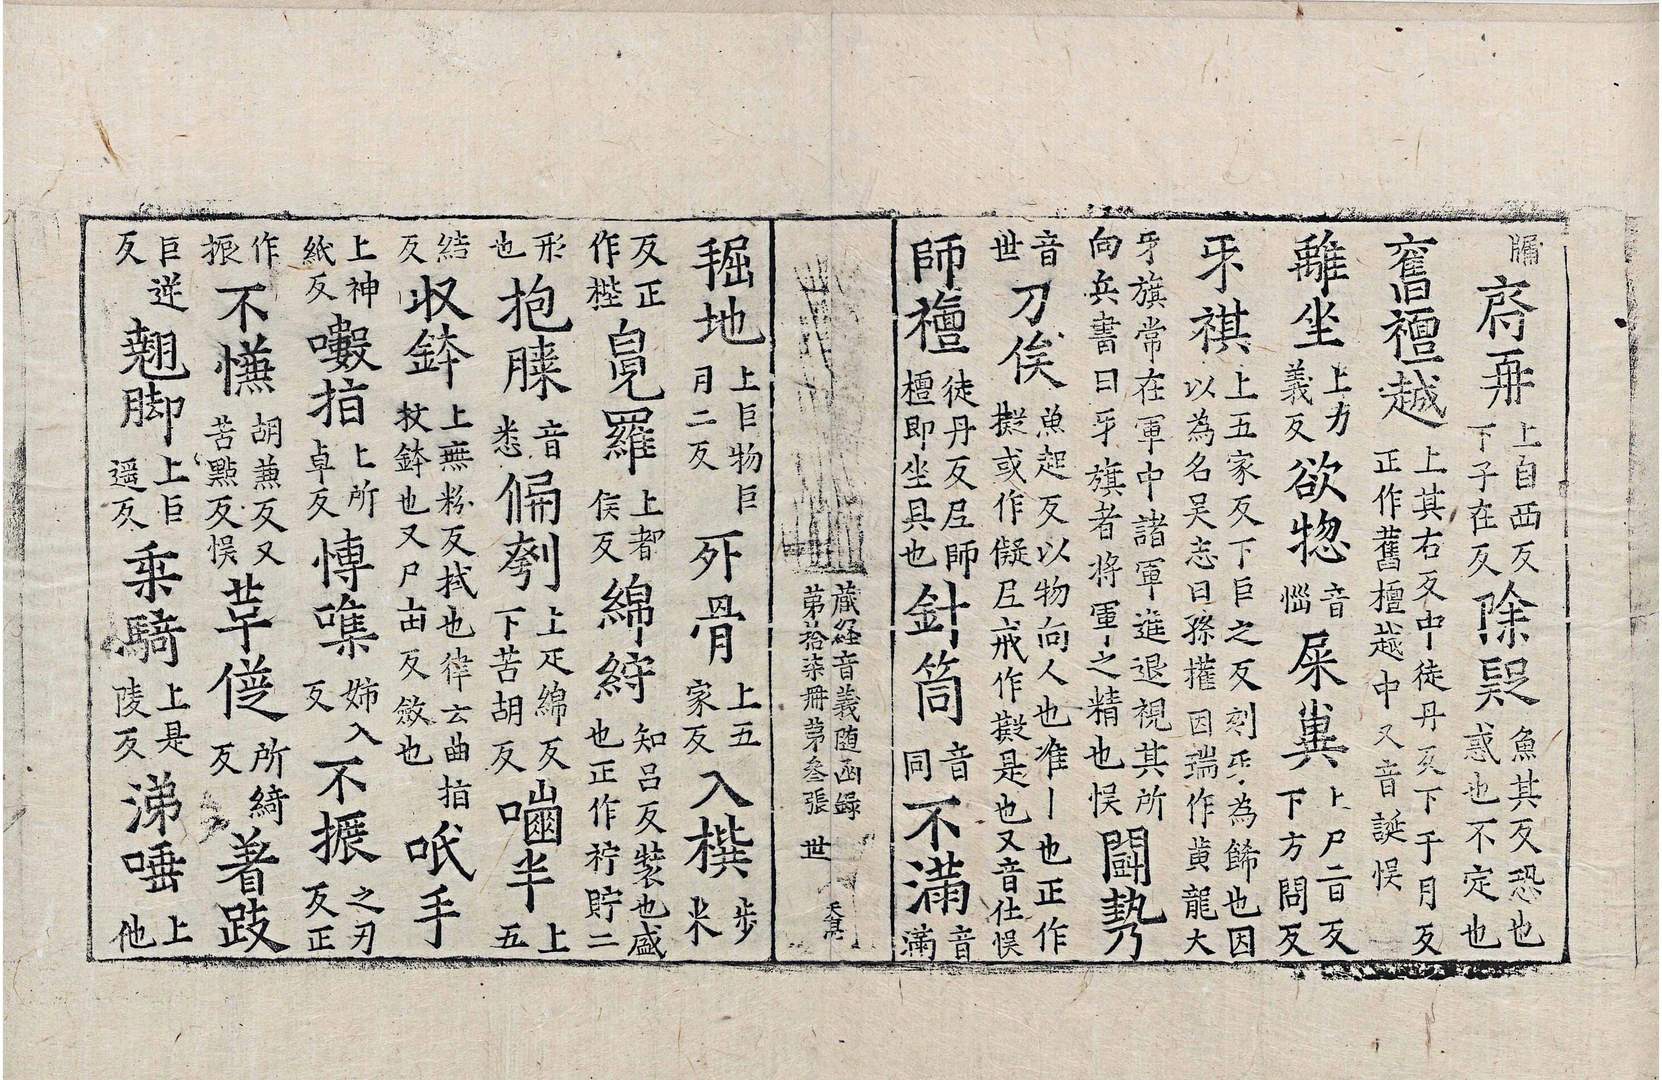 牖齋再上自西反下子在反除疑魚其反恐也惑也不定也
舊檀越上其右反中徒丹反下于月反正作舊檀越中又音誕悮
離坐上力義反欲惚音惱屎糞上尸旨反下方問反
牙祺上五家反下巨之反刻牙為餙也因以為名吴志曰孫攉因瑞作黃龍大
牙旗常在軍中諸軍進退視其所向兵書曰牙旗者將軍之精也悮鬪勢
音世刀俟魚起反以物向人也准丨也正作擬或作儗尼戒作擬是也又音仕悮
師襢徒丹反尼師檀即坐具也針筒音同不滿音滿
藏経音義随函録
第拾柒冊第叄張 世
掘地上巨物巨月二反死骨上五家反入㯷步米
反正作梐兠羅上都侯反綿紵知呂反裝也盛也正作褚貯二
形也抱膝音悉偏刳上疋綿反下苦胡反嚙半上五
結反収鉢上無粉反拭也律云曲指扠鉢也又尸由反斂也吺手
上神紙反㗱指上所卓反愽噍姊入反不振之刃反正
作振不慊胡兼反又苦點反悮草屣所綺反著跂
巨逆反翹脚上巨遥反乗騎上是陵反涕唾上他